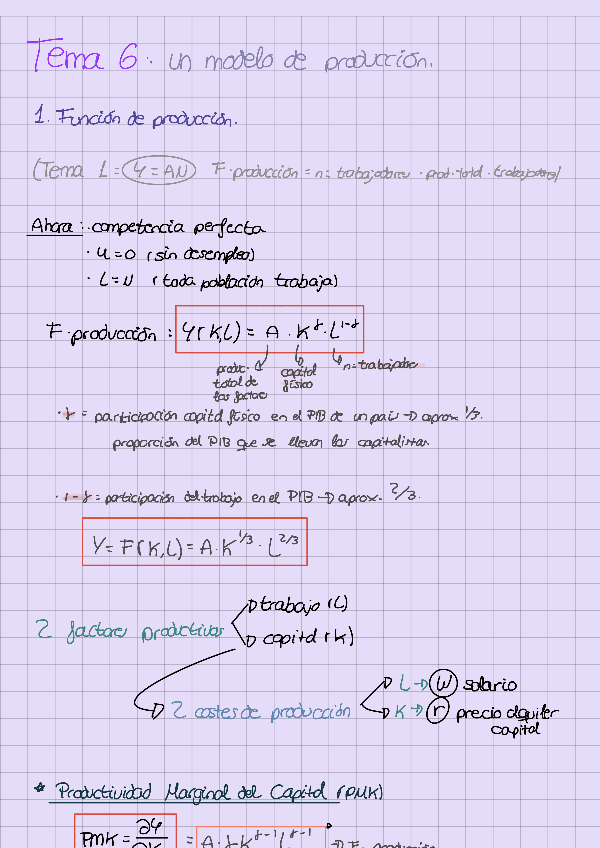 Tema 6: un modelo de producción.
1. Función de producción.
(Tema L = Y = AN F. producción = nº trabajadores · prod. total · trabajadores)
Ahora: · competencia perfecta
· u = 0 (sin desempleo)
· L = N (toda población trabaja)
F. producción : Y(K,L) = A · K^γ · L^1-γ
produc. total de los factores
capital físico
nº trabajadores
· γ = participación capital físico en el PIB de un país → aprox 1/3.
proporción del PIB que se llevan los capitalistas.
· 1-γ = participación del trabajo en el PIB → aprox. 2/3.
Y = F(K,L) = A · K^1/3 · L^2/3
2 factores productivos
→ trabajo (L)
→ capital (K)
2 costes de producción
L → W salario
K → r precio alquiler capital
* Productividad Marginal del Capital (PMK)
PMK = ∂Y = A · γ K^γ-1 L^γ-1